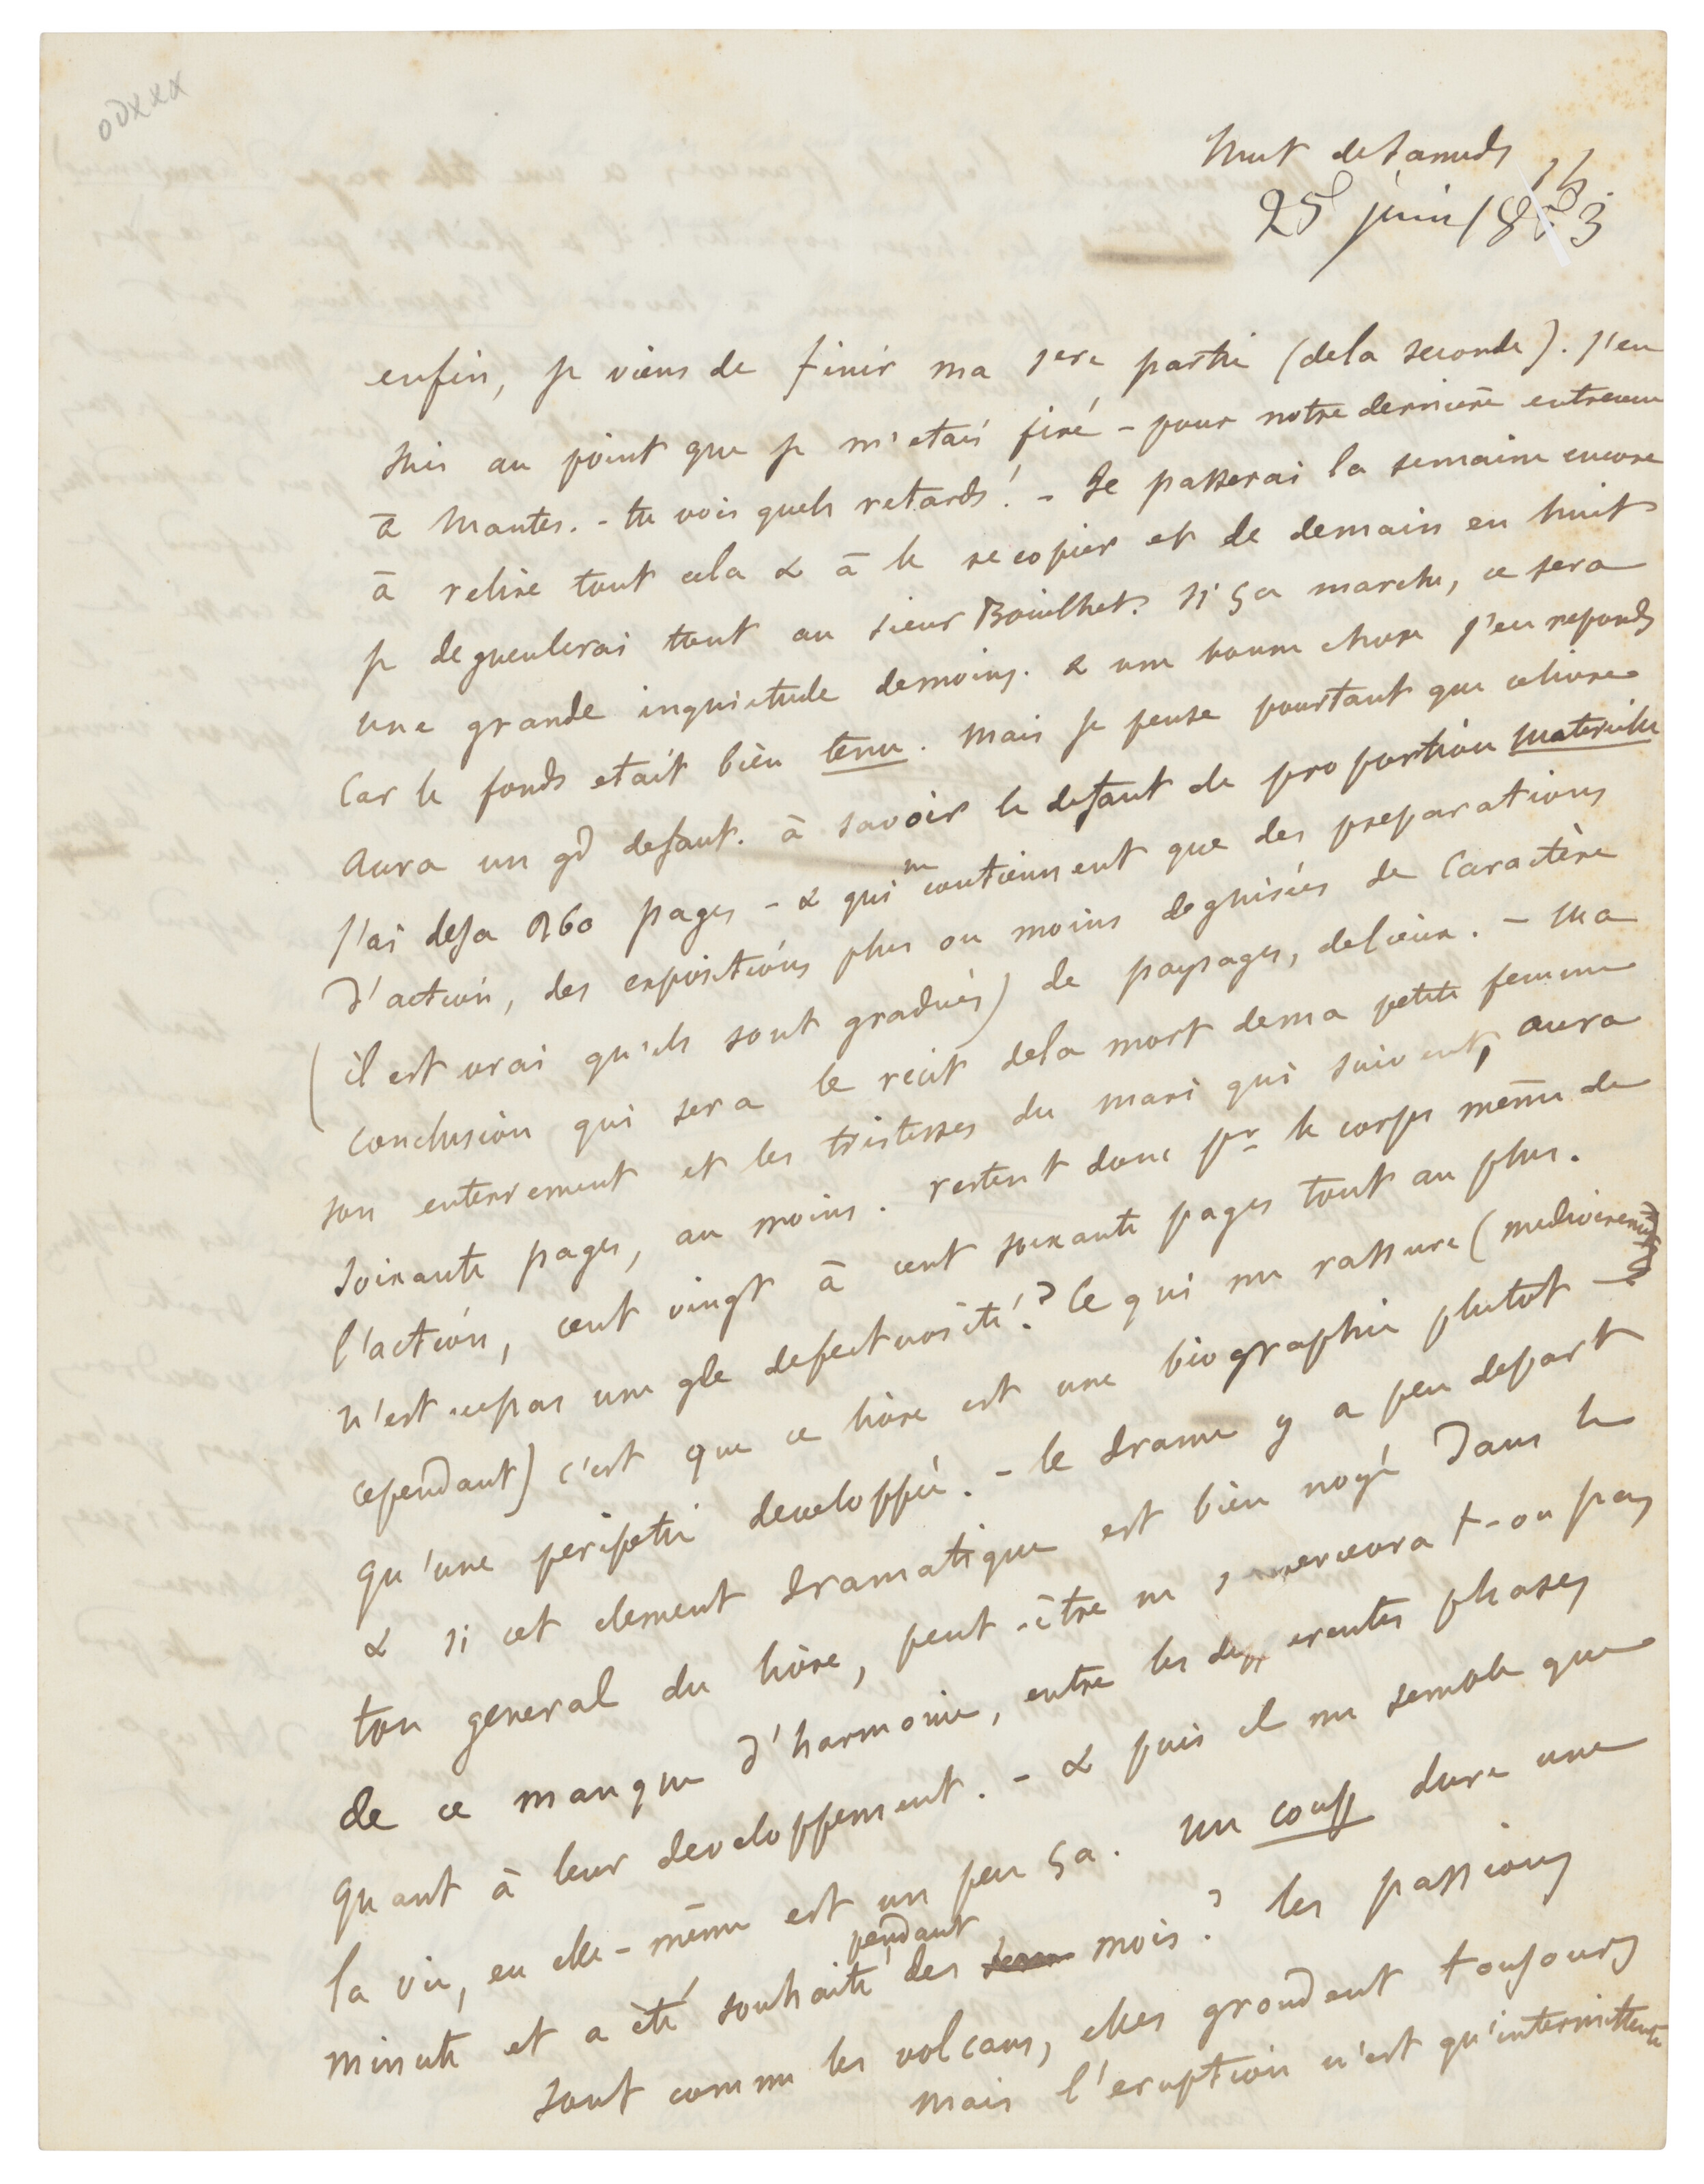 Nuit de Samedi 1 h.
25 juin 1853
enfin, je viens de finir ma 1ere partie (dela seconde). j'en
suis au point que je m'etais fixé – pour notre dernière entrevue
à Mantes. – tu vois quels retards! – Je passerai la semaine encore
à relire tout cela & à le recopier et de demain en huit
je degueulerai tout au sieur Bouilhet. si ça marche, ce sera
une grande inquietude demoins. & une bonne chose j'en reponds
Car le fonds etait bien tenu. Mais je pense pourtant que celivre
Aura un gd defaut. à savoir le defaut de proportion materielle
j'ai deja 260 pages – & qui ne contiennent que des preparations
d'action, des expositions plus ou moins deguisées de Caractère
(il est vrai qu'ils sont gradués) de paysages, delieux. – Ma
conclusion qui sera le recit dela mort dema petite femme
son enterrement et les tristesses du mari qui suivent, aura
Soixante pages, au moins. restent donc pr le corps même de
l'action, cent vingt à cent soixante pages tout au plus.
n'est-cepas une gde defectuosité? Ce qui me rassure (mediocrement
cependant) c'est que ce livre est une biographie plutot
qu'une peripetie developpée. – le drame y a peu depart
& si cet element dramatique est bien noyé dans le
ton general du livre, peut-être ne s'apercevra t-on pas
de ce manque d'harmonie, entre les differentes phases
quant à leur developpement. – & puis il me semble que
la vie, en elle-même est un peu ça. Un coup dure une
minute et a été souhaité pendant des mois? les passions
sont comme les volcans, elles grondent toujours
mais l'eruption n'est qu'intermittente